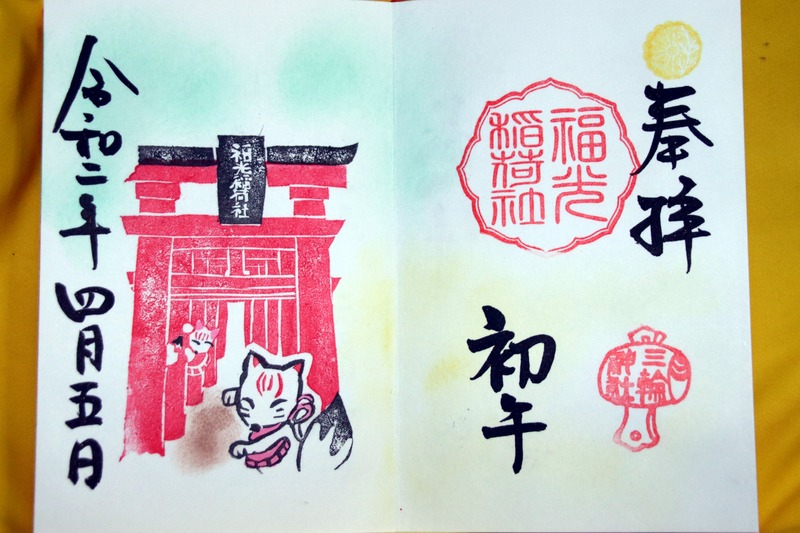 奉拝
福光
稲荷社
初午
三輪
神社
福光稲荷社
令和二年四月五日